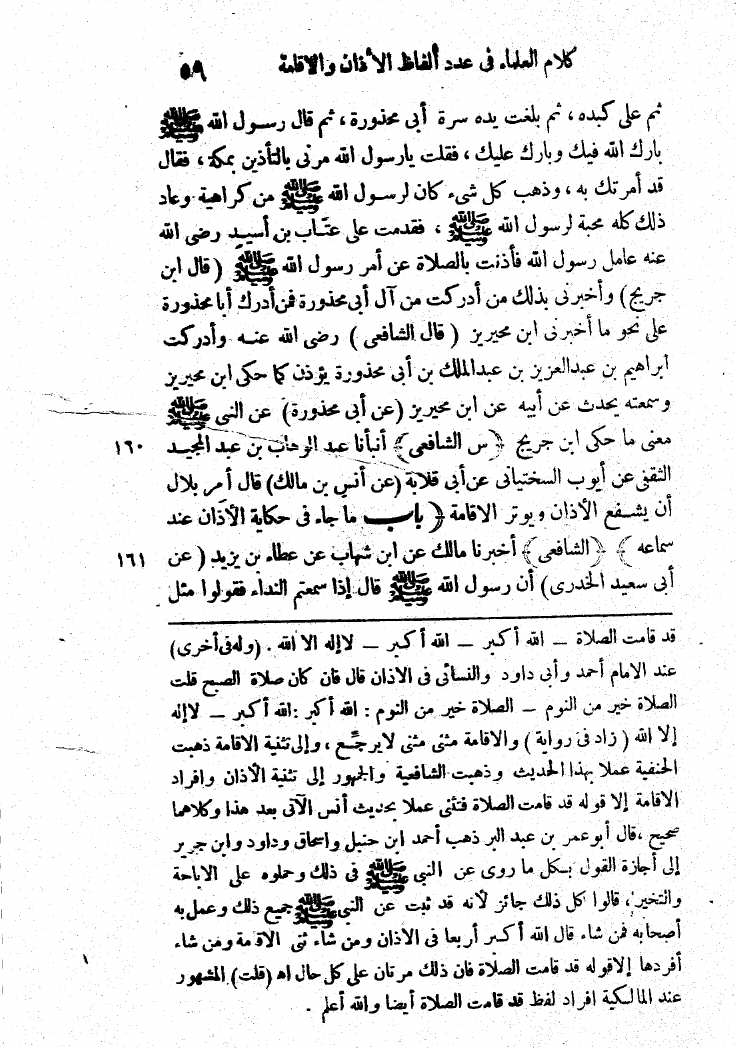 كلام العلماء فى عدد ألفاظ الأذان والاقامة ٥٩
ثم على كبده ، ثم بلغت يده سرة أبى محذورة ، ثم قال رسول الله ﷺ
بارك الله فيك وبارك عليك ، فقلت يارسول الله مرنى بالتأذين بمكة ، فقال
قد أمرتك به ، وذهب كل شىء كان لرسول الله ﷺ من كراهية وعاد
ذلك كله محبة لرسول الله ﷺ ، فقدمت على عتَّاب بن أسيد رضى الله
عنه عامل رسول الله فأذنت بالصلاة عن أمر رسول الله ﷺ ( قال ابن
جريج ) وأخبرنى بذلك من أدركت من آل أبى محذورة فمن أدرك أبا محذورة
على نحو ما أخبرنى ابن محيريز ( قال الشافعى ) رضى الله عنه وأدركت
ابراهيم بن عبدالعزيز بن عبدالملك بن أبى محذورة يؤذن كما حكى ابن محيريز
وسمعته يحدث عن أبيه عن ابن محيريز (عن أبى محذورة) عن النبى ﷺ
معنى ما حكى ابن جريج ﴿س الشافعى﴾ أنبأنا عبد الوهاب بن عبد المجيد ١٦٠
الثقفى عن أيوب السختيانى عن أبى قلابة (عن أنس بن مالك) قال أمر بلال
أن يشفع الأذان ويوتر الاقامة ﴿ باب ما جاء فى حكاية الآذان عند
سماعه ﴾ ﴿الشافعى﴾ أخبرنا مالك عن ابن شهاب عن عطاء بن يزيد ( عن ١٦١
أبى سعيد الخدرى) أن رسول الله ﷺ قال إذا سمعتم النداء فقولوا مثل
قد قامت الصلاة – الله أكبر – الله أكبر – لاإله الا الله . (وله فى أخرى)
عند الامام أحمد وأبى داود والنسائى فى الاذان قال فان كان صلاة الصبح قلت
الصلاة خير من النوم – الصلاة خير من النوم : الله أكبر : الله أكبر – لاإله
إلا الله ( زاد فى رواية ) والاقامة مثنى مثنى لايرجِّع ، وإلى تثنية الاقامة ذهبت
الحنفية عملا بهذا الحديث وذهبت الشافعية والجمهور إلى تثنية الآذان وافراد
الاقامة إلا قوله قد قامت الصلاة فتثنى عملا بحديث أنس الآتى بعد هذا وكلاهما
صحيح ، قال أبو عمر بن عبد البر ذهب أحمد ابن حنبل واسحاق وداود وابن جرير
إلى أجازة القول بكل ما روى عن النبى ﷺ فى ذلك وحملوه على الاباحة
والتخير ، قالوا كل ذلك جائز لانه قد ثبت عن النبى ﷺ جميع ذلك وعمل به
أصحابه فمن شاء قال الله أكبر أربعا فى الاذان ومن شاء ثنى الاقامة ومن شاء
أفردها إلا قوله قد قامت الصلاة فان ذلك مرتان على كل حال اه (قلت) المشهور
عند المالكية افراد لفظ قد قامت الصلاة أيضا والله أعلم .